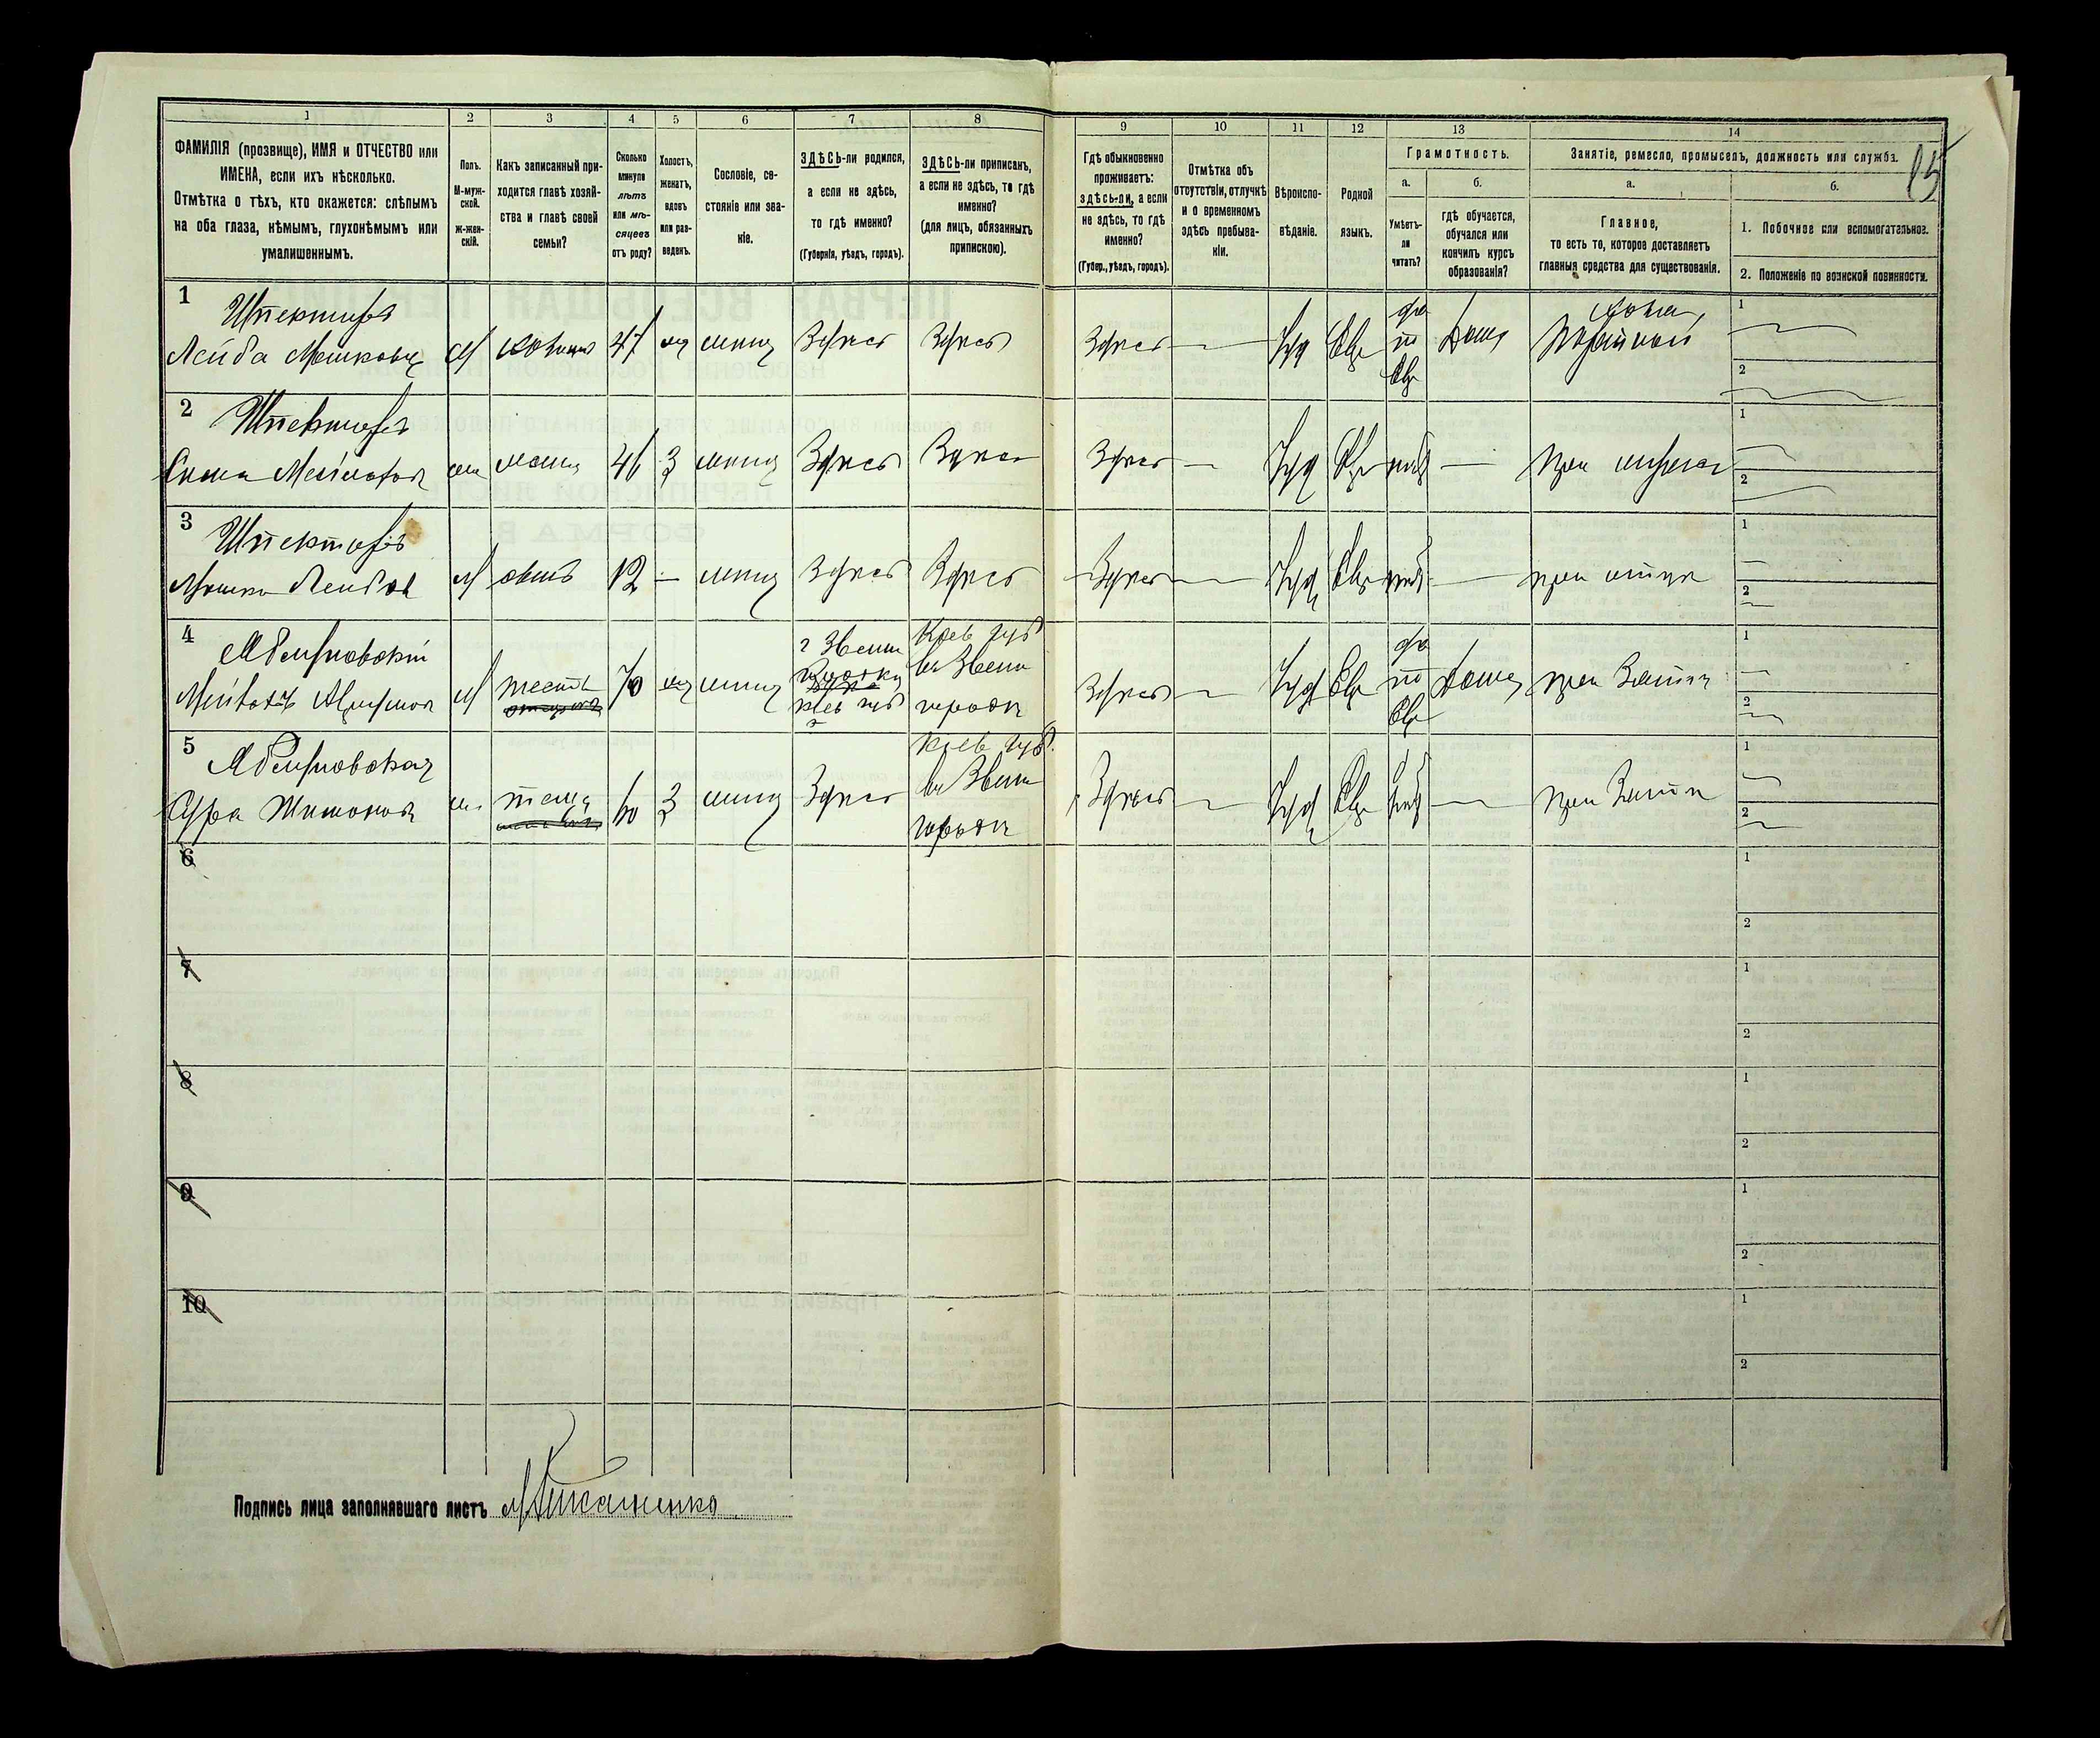 1
2
3
4
5
6
7
8
9
10
11
12
13
14
ФАМИЛІЯ (прозвище), ИМЯ и ОТЧЕСТВО или
ИМЕНА, если ихъ нѣсколько.
Отмѣтка о тѣхъ, кто окажется: слѣпымъ
на оба глаза, нѣмымъ, глухонѣмымъ или
умалишеннымъ.
Полъ.
М-муж-
ской.
ж-жен-
скій.
Какъ записанный при-
ходится главѣ хозяй-
ства и главѣ своей
семьи?
Сколько
минуло
лѣтъ
или мѣ-
сяцевъ
отъ роду?
Холостъ,
женатъ,
вдовъ
или раз-
веденъ.
Сословіе, со-
стояніе или зва-
ніе.
ЗДѢСЬ-ли родился,
а если не здѣсь,
то гдѣ именно?
(Губернія, уѣздъ, городъ).
ЗДѢСЬ-ли приписанъ,
а если не здѣсь, то гдѣ
именно?
(для лицъ, обязанныхъ
припискою).
Гдѣ обыкновенно
проживаетъ:
здѣсь-ли, а если
не здѣсь, то гдѣ
именно?
(Губер., уѣздъ, городъ).
Отмѣтка объ
отсутствіи, отлучкѣ
и о временномъ
здѣсь пребыва-
ніи.
Вѣроиспо-
вѣданіе.
Родной
языкъ.
Грамотность.
а.
Умѣетъ-
ли
читать?
б.
гдѣ обучается,
обучался или
кончилъ курсъ
образованія?
Занятіе, ремесло, промыселъ, должность или служба.
а.
Главное,
то есть то, которое доставляетъ
главныя средства для существованія.
б.
1. Побочное или вспомогательное.
2. Положеніе по воинской повинности.
15
1
Шпекторъ
Лейба Мошковъ
М
хозяинъ
47
мѣщ
Здѣсь
Здѣсь
Здѣсь
—
Іуд
Евр
да
по
Евр
дома
1
2
2
Шпекторъ
жена
46
З
мѣщ
Здѣсь
Здѣсь
Здѣсь
—
Іуд
Евр
нѣтъ
—
при мужѣ
1
2
3
Шпекторъ
Мошко Лейбов
М
сынъ
12
—
мѣщ
Здѣсь
Здѣсь
Здѣсь
—
Іуд
Евр
нѣтъ
—
при отцѣ
1
2
4
М
тесть
70
мѣщ
г Звени
Кіев губ
Кіев губ
въ Звени
городк
Здѣсь
—
Іуд
Евр
да
по
Евр
дома
при Зятѣ
1
2
5
Сура
теща
60
З
мѣщ
Здѣсь
Кіев губ.
въ Звени
городк
Здѣсь
—
Іуд
Евр
нѣтъ
—
при Зятѣ
1
2
6
1
2
7
1
2
8
1
2
9
1
2
10
1
2
Подпись лица заполнявшаго листъ